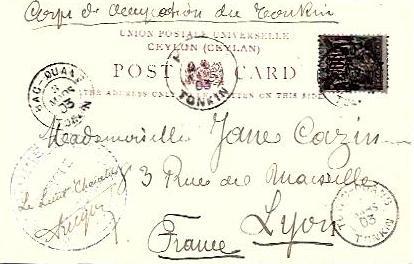 Corps d'occupation du Tonkin
UNION POSTALE UNIVERSELLE
CEYLON (CEYLAN)
POST CARD
THE ADDRESS ONLY ON THIS SIDE
BAC-QUANG
MARS
03
TONKIN
03
TONKIN
MARS
03
TONKIN
Mademoiselle Jane Cazin
3 Rue de Marseille
Lyon
France
Le Lieut Chevalier